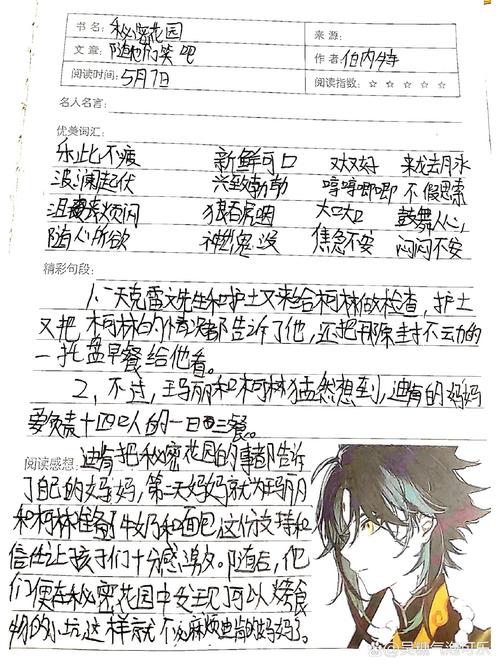 书名：秘密花园
来源：
文章：随他们笑吧
作者伯内特
阅读时间：5月7日
阅读指数：☆ ☆ ☆ ☆ ☆
名人名言：
优美词汇：
乐此不疲 新鲜可口 来龙去脉
波澜起伏 兴致勃勃 哼哼唧唧 不假思索
沮丧烦闷 狼吞虎咽 大口大口 鼓舞人心
随心所欲 神出鬼没 焦急不安 闷闷不安
精彩句段：
1、一天克雷文先生和护士又来给柯林做检查，护士
又把柯林的情况都告诉了他，还把那原封不动的
一托盘早餐给他看。
2、不过，玛丽和柯林猛然想到，迪肯的妈妈
要负责十四口人的一日三餐。
阅读感想：迪肯把秘密花园的事都告诉
了自己的妈妈，第一天妈妈就为玛丽
和柯林准备了牛奶和面包这份支持和
信任让孩子们十分感激。随后，他
们便在秘密花园中发现可以烤食
物的小坑这样就不必麻烦迪肯的妈妈了。